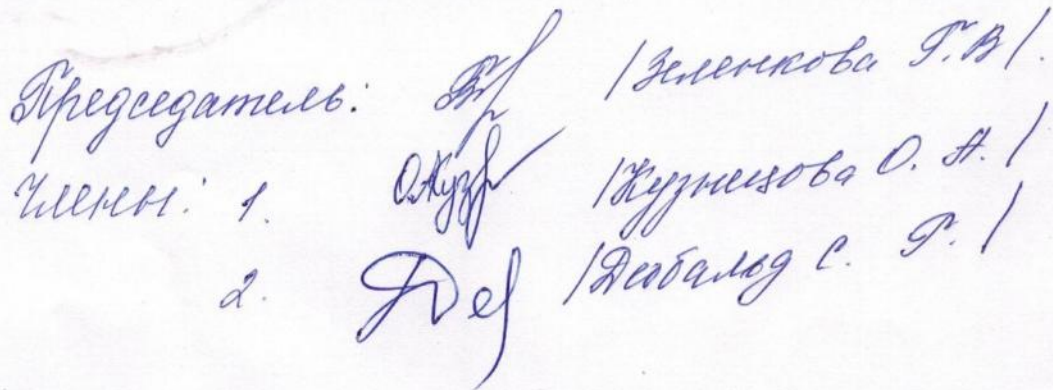 Председатель: /Зеленкова Г.В/.
Члены: 1. О.Куз /Кузнецова О. А./
2. Де /Деобальд С. Г./